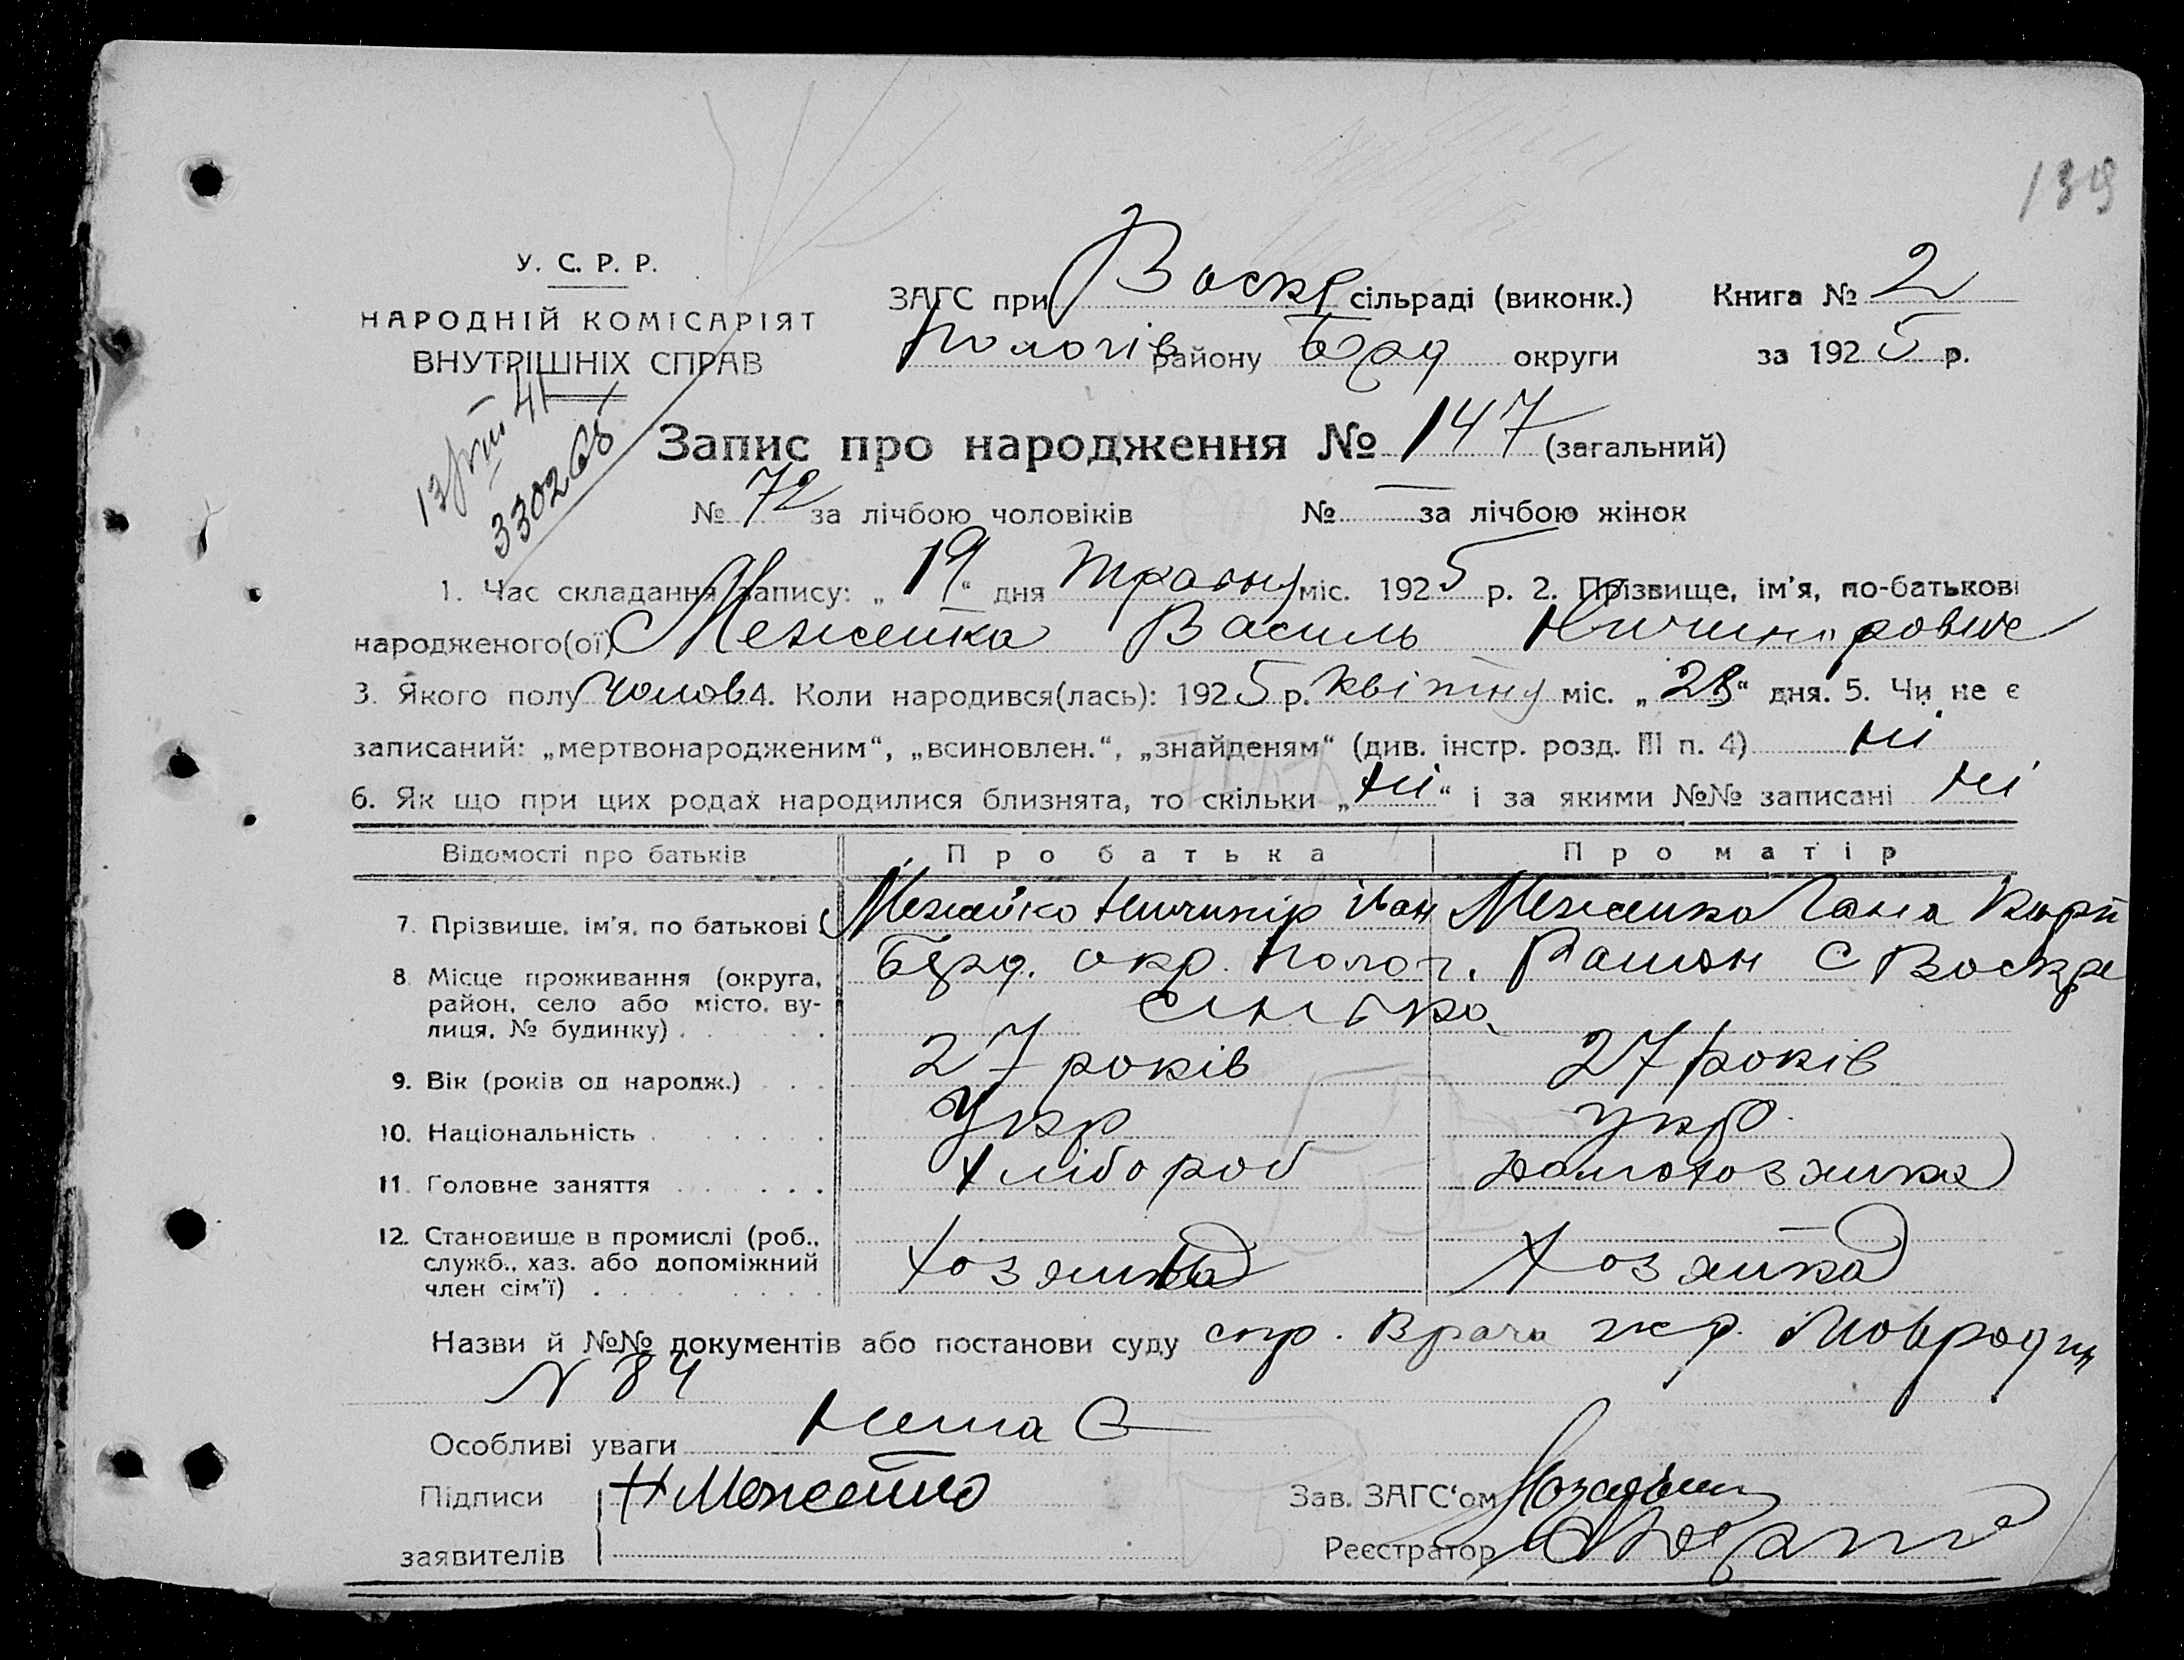 139
У. С. Р. Р.
НАРОДНІЙ КОМІСАРІЯТ
ВНУТРІШНІХ СПРАВ
ЗАГС при Воскр сільраді (виконк.) Книга № 2
Пологів району Бэрд округи за 1925 р.
41
330265
Запис про народження № 147 (загальний)
№ 72 за лічбою чоловіків № — за лічбою жінок
1. Час складання запису: „19“ дня травня міс. 1925 р. 2. Прізвище, ім'я, по-батькові
народженого(ої) Межейко Василь Ничипирович
3. Якого полу Чолов 4. Коли народився(лась): 1925 р. квітня міс. „28“ дня. 5. Чи не є
записаний: „мертвонародженим“, „всиновлен.“, „знайденям“ (див. інстр. розд. III п. 4) ні
6. Як що при цих родах народилися близнята, то скільки „ні“ і за якими №№ записані ні
Відомості про батьків Про батька Про матір
7. Прізвище, ім'я, по батькові Межейко Ничипір Іван Межейко Гана
8. Місце проживання (округа, район, село або місто, вулиця, № будинку) Бэрд. окр. Полог. Район с Воскре
сінька
9. Вік (років од народж.) 27 років 27 років
10. Національність Укр укр
11. Головне заняття Хлібороб домохозяйка
12. Становище в промислі (роб., служб., хаз. або допоміжний член сім'ї) Хозяйка
Назви й №№ документів або постанови суду спр. Врача
N 84
Особливі уваги Нема
Підписи Н Межейко Зав. ЗАГС'ом
заявителів Реєстратор